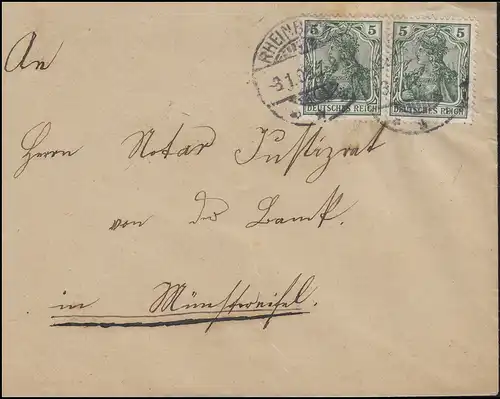 5 5 5 5
DEUTSCHES REICH DEUTSCHES REICH
An
Herrn Notar Justizrat
von der
in Münstereifel.